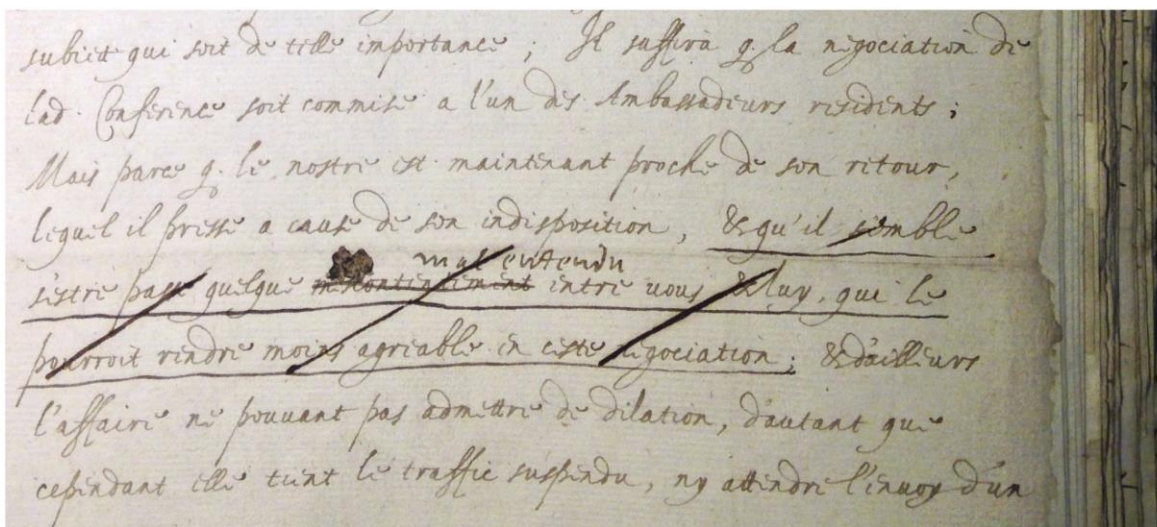 subiect qui soit de telle importance ; Il suffira q. la negociation de
lad. Conference soit commise a l'un des Ambassadeurs residents ;
Mais parce q. le nostre est maintenant proche de son retour,
lequel il presse a cause de son indisposition, & qu'il semble
mal entendu
s'estre passé quelque mescontentement entre vous & luy, qui le
pourroit rendre moins agreable en ceste negociation ; & d'ailleurs
l'affaire ne pouvant pas admettre de dilation, d'autant que
cependant elle tient le traffic suspendu, ny attendre l'envoy d'un